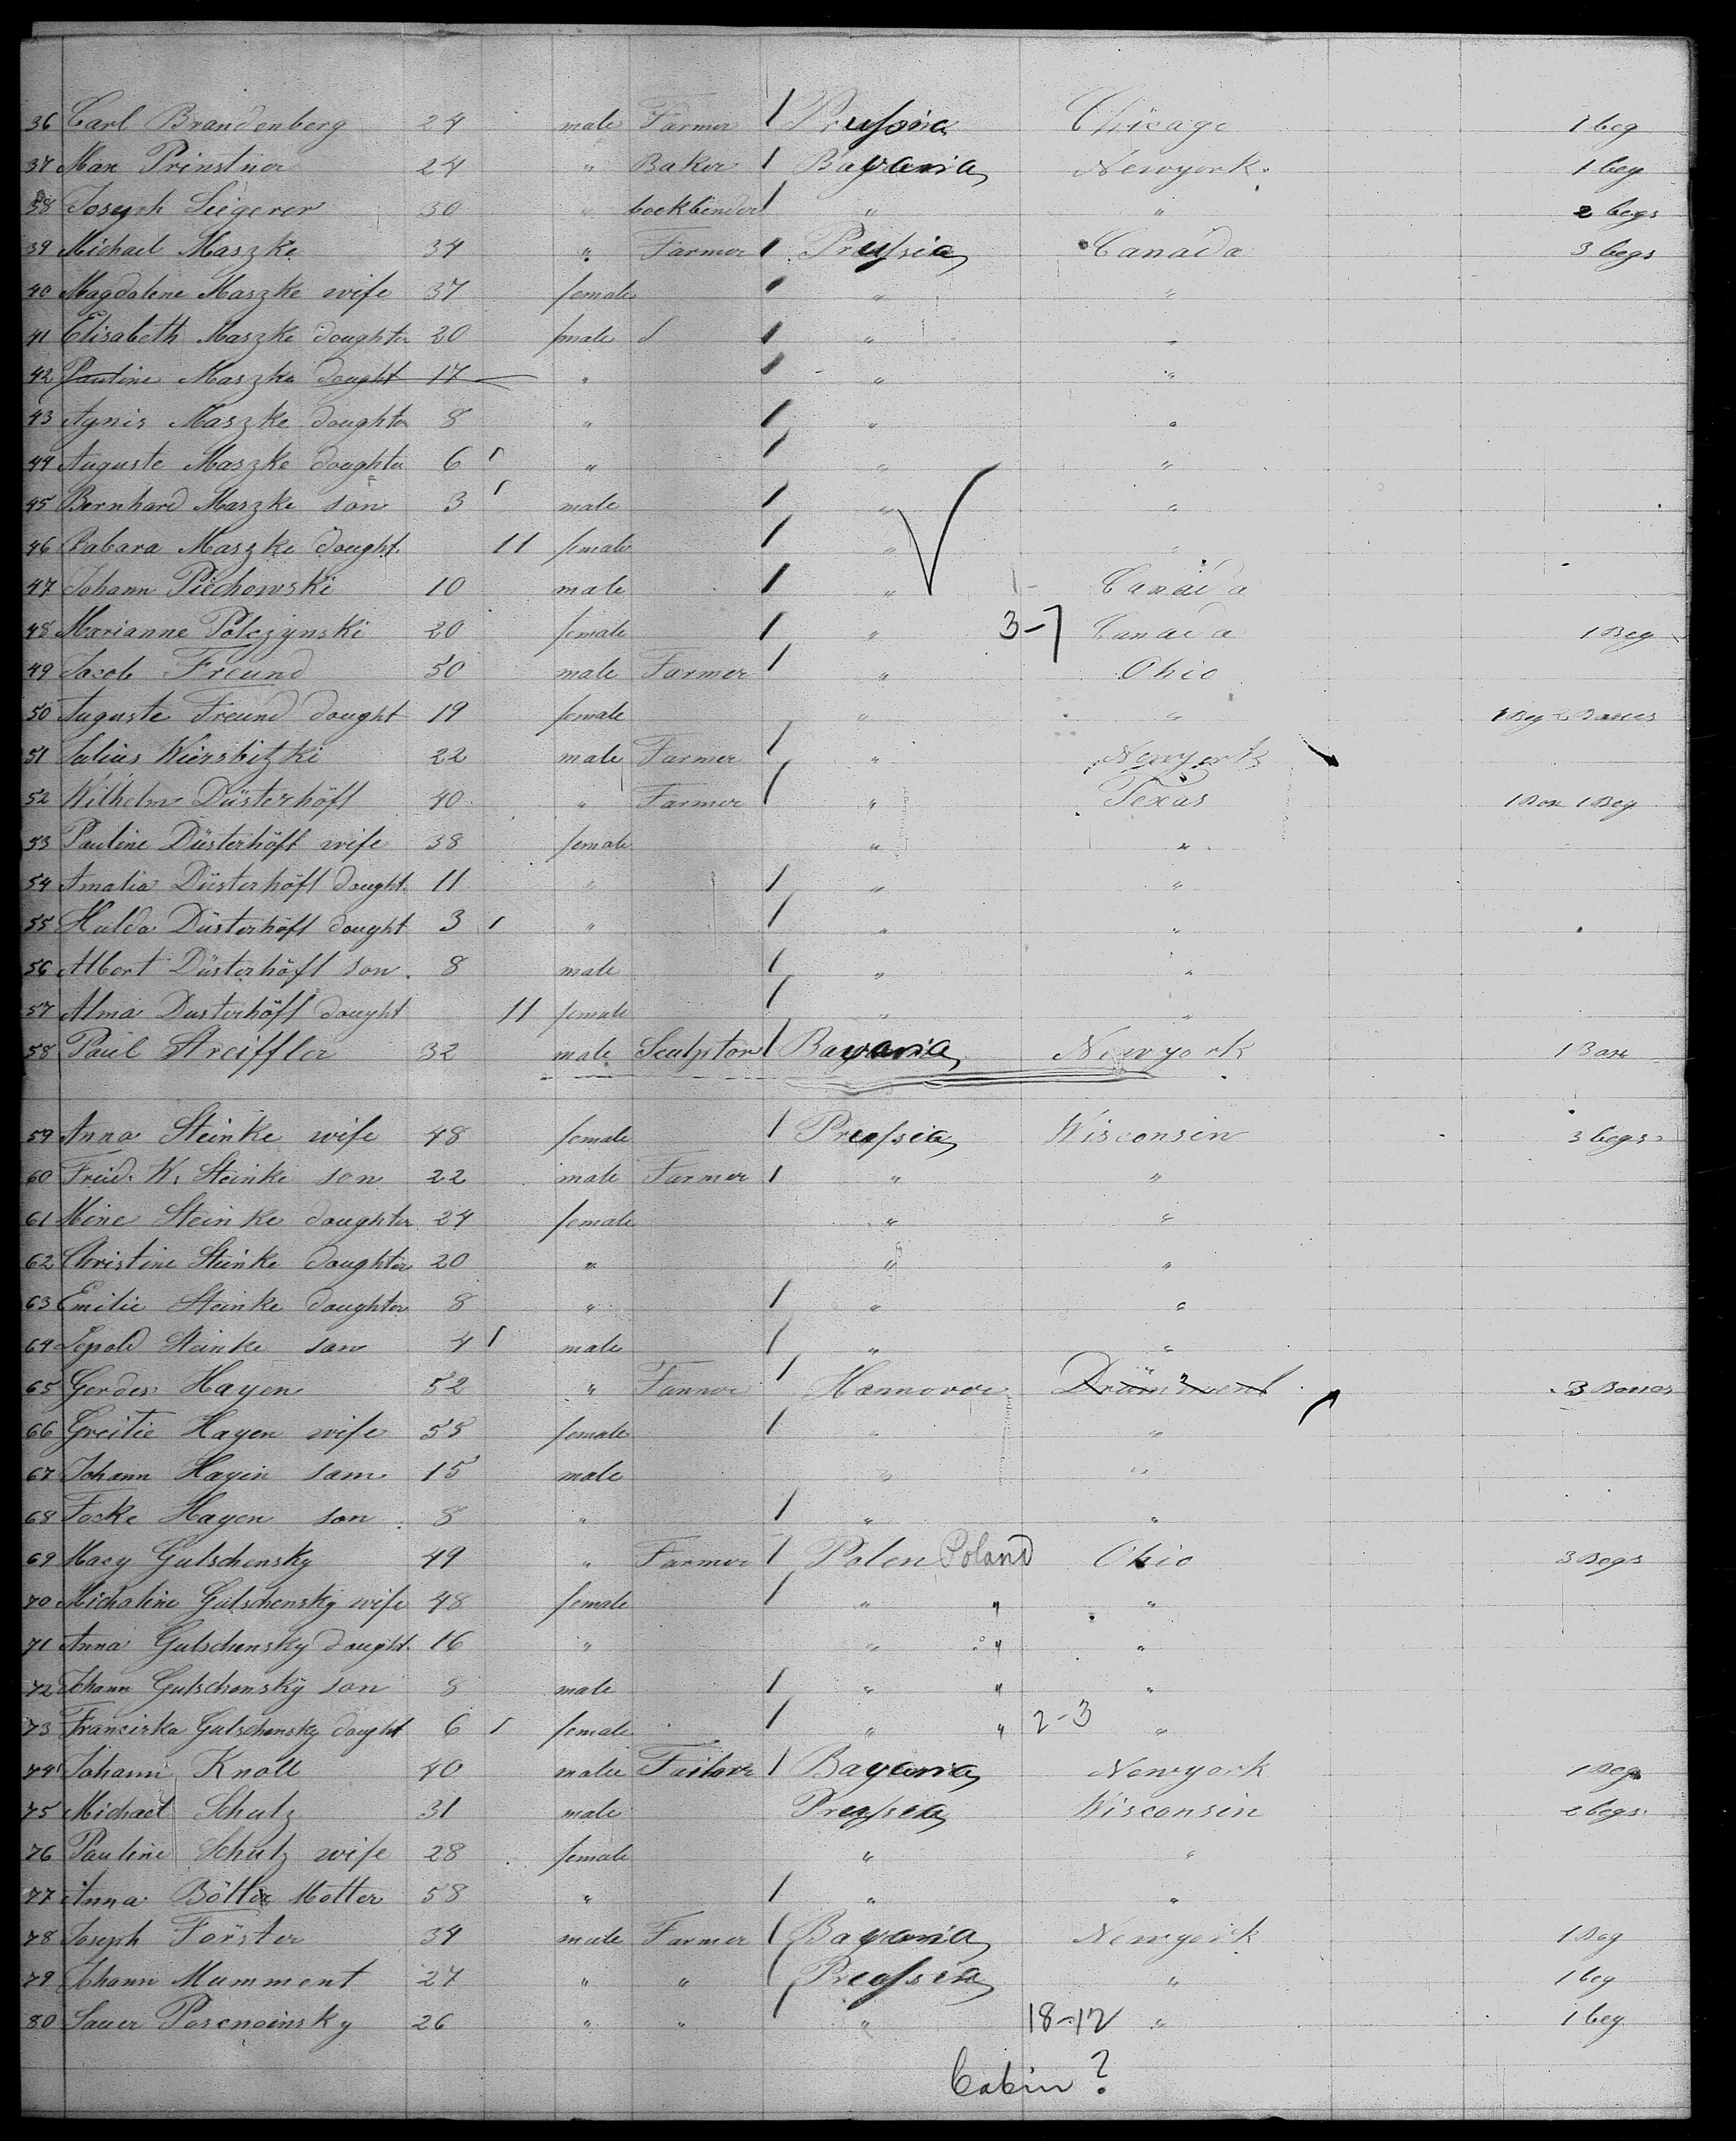 36 Carl Brandenberg 24 male Farmer / Prussia Chicago 1 beg
37 Max Prinstner 24 " Baker / Bavaria Newyork. 1 beg
38 Joseph Siegerer 30 " bookbinder / " " 2 begs
39 Michael Maszke 34 " Farmer / Prussia Canada 3 begs
40 Magdalene Maszke wife 37 female / " "
41 Elisabeth Maszke doughter 20 female / " "
42 Pauline Maszke dought 17 " / " "
43 Agnis Maszke doughter 8 " / " "
44 Auguste Maszke doughter 6 / " / " "
45 Bernhard Maszke son 3 / male / " "
46 Babara Maszke dought. 11 female / " "
47 Johann Piechowski 10 male / " Canada
48 Marianne Polczynski 20 female / " 3-7 Canada 1 Beg
49 Jacob Freund 50 male Farmer / " Ohio
50 Auguste Freund dought 19 female " " 1 Beg 2 Boxes
51 Julius Wiersbitzki 22 male Farmer / " Newyork
52 Wilhelm Düsterhöft 40 " Farmer / " Texas 1 Box 1 Beg
53 Pauline Düsterhöft wife 38 female " "
54 Amalia Düsterhöft dought. 11 " / " "
55 Hulda Düsterhöft dought 3 / " / " "
56 Albert Düsterhöft son. 8 male / " "
57 Alma Dusterhöft dought 11 female / " "
58 Paul Streiffler 32 male Sculptor / Bavaria Newyork 1 Box
59 Anna Steinke wife 48 female / Prussia Wisconsin 3 begs
60 Fried. W. Steinke son 22 male Farmer / " "
61 Mine Steinke doughter 24 female " "
62 Christine Steinke doughter 20 " " "
63 Emilie Steinke doughter 8 " / " "
64 Lepold Steinke son 4 / male / " "
65 Gerdes Hayen 52 " Farmer / Hannover 3 Boxes
66 Greitie Hayen wife 55 female / " "
67 Johann Hayen sam 15 male " "
68 Focke Hayen son 8 " / " "
69 Macy Gutschensky 49 " Farmer / Polen Poland Ohio 3 Begs
70 Michaline Gutschensky wife 48 female / " " "
71 Anna Gutschensky dought. 16 " " " "
72 Johann Gutschensky son 8 male / " " "
73 Francizka Gutschensky dought 6 / female / " " 2-3 "
74 Johann Knoll 40 male / Bavaria Newyork 1 Beg
75 Michael Schulz 31 male Prussia Wisconsin 2 begs
76 Pauline Schulz wife 28 female " "
77 Anna Motter 58 " / " "
78 Joseph Förster 34 male Farmer / Bavaria Newyork 1 Beg
79 Johann Mumment 27 " " / Prussia " 1 beg
80 Posenoinsky 26 " " / " 18-12 " 1 beg
Cabin?